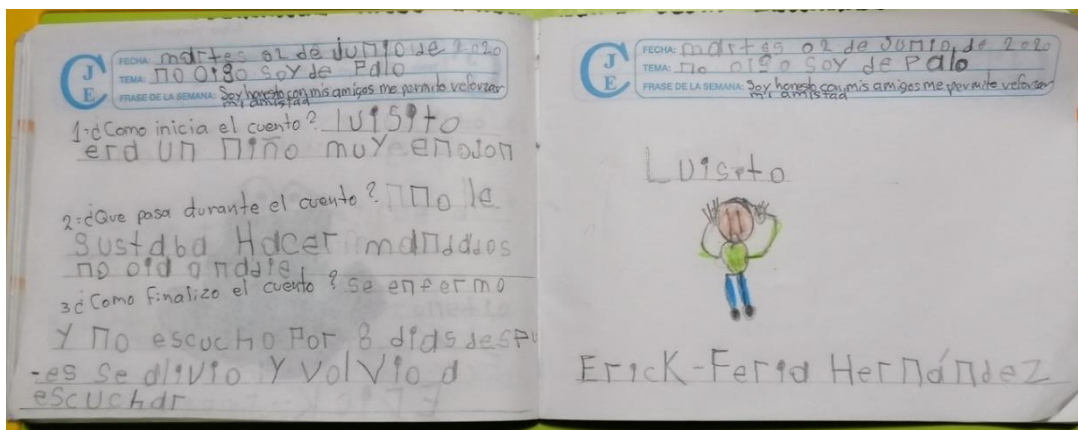 C J E
FECHA: martes 02 de Junio de 2020
TEMA: no oigo soy de Palo
FRASE DE LA SEMANA: Soy honesto con mis amigos me permite reforzar
mi amistad
1-¿Como inicia el cuento? luisito
era un niño muy enojon
2-¿Que pasa durante el cuento? no le
gustaba Hacer mandados
no oia a nadie
3¿Como finalizo el cuento? se enfermo
Y no escucho Por 8 dias despu
-es se alivio Y volvio a
escuchar
C J E
FECHA: martes 02 de Junio, de 2020
TEMA: no oigo soy de Palo
FRASE DE LA SEMANA: Soy honesto con mis amigos me permite reforzar
mi amistad
Luisito
Erick-Feria Hernández